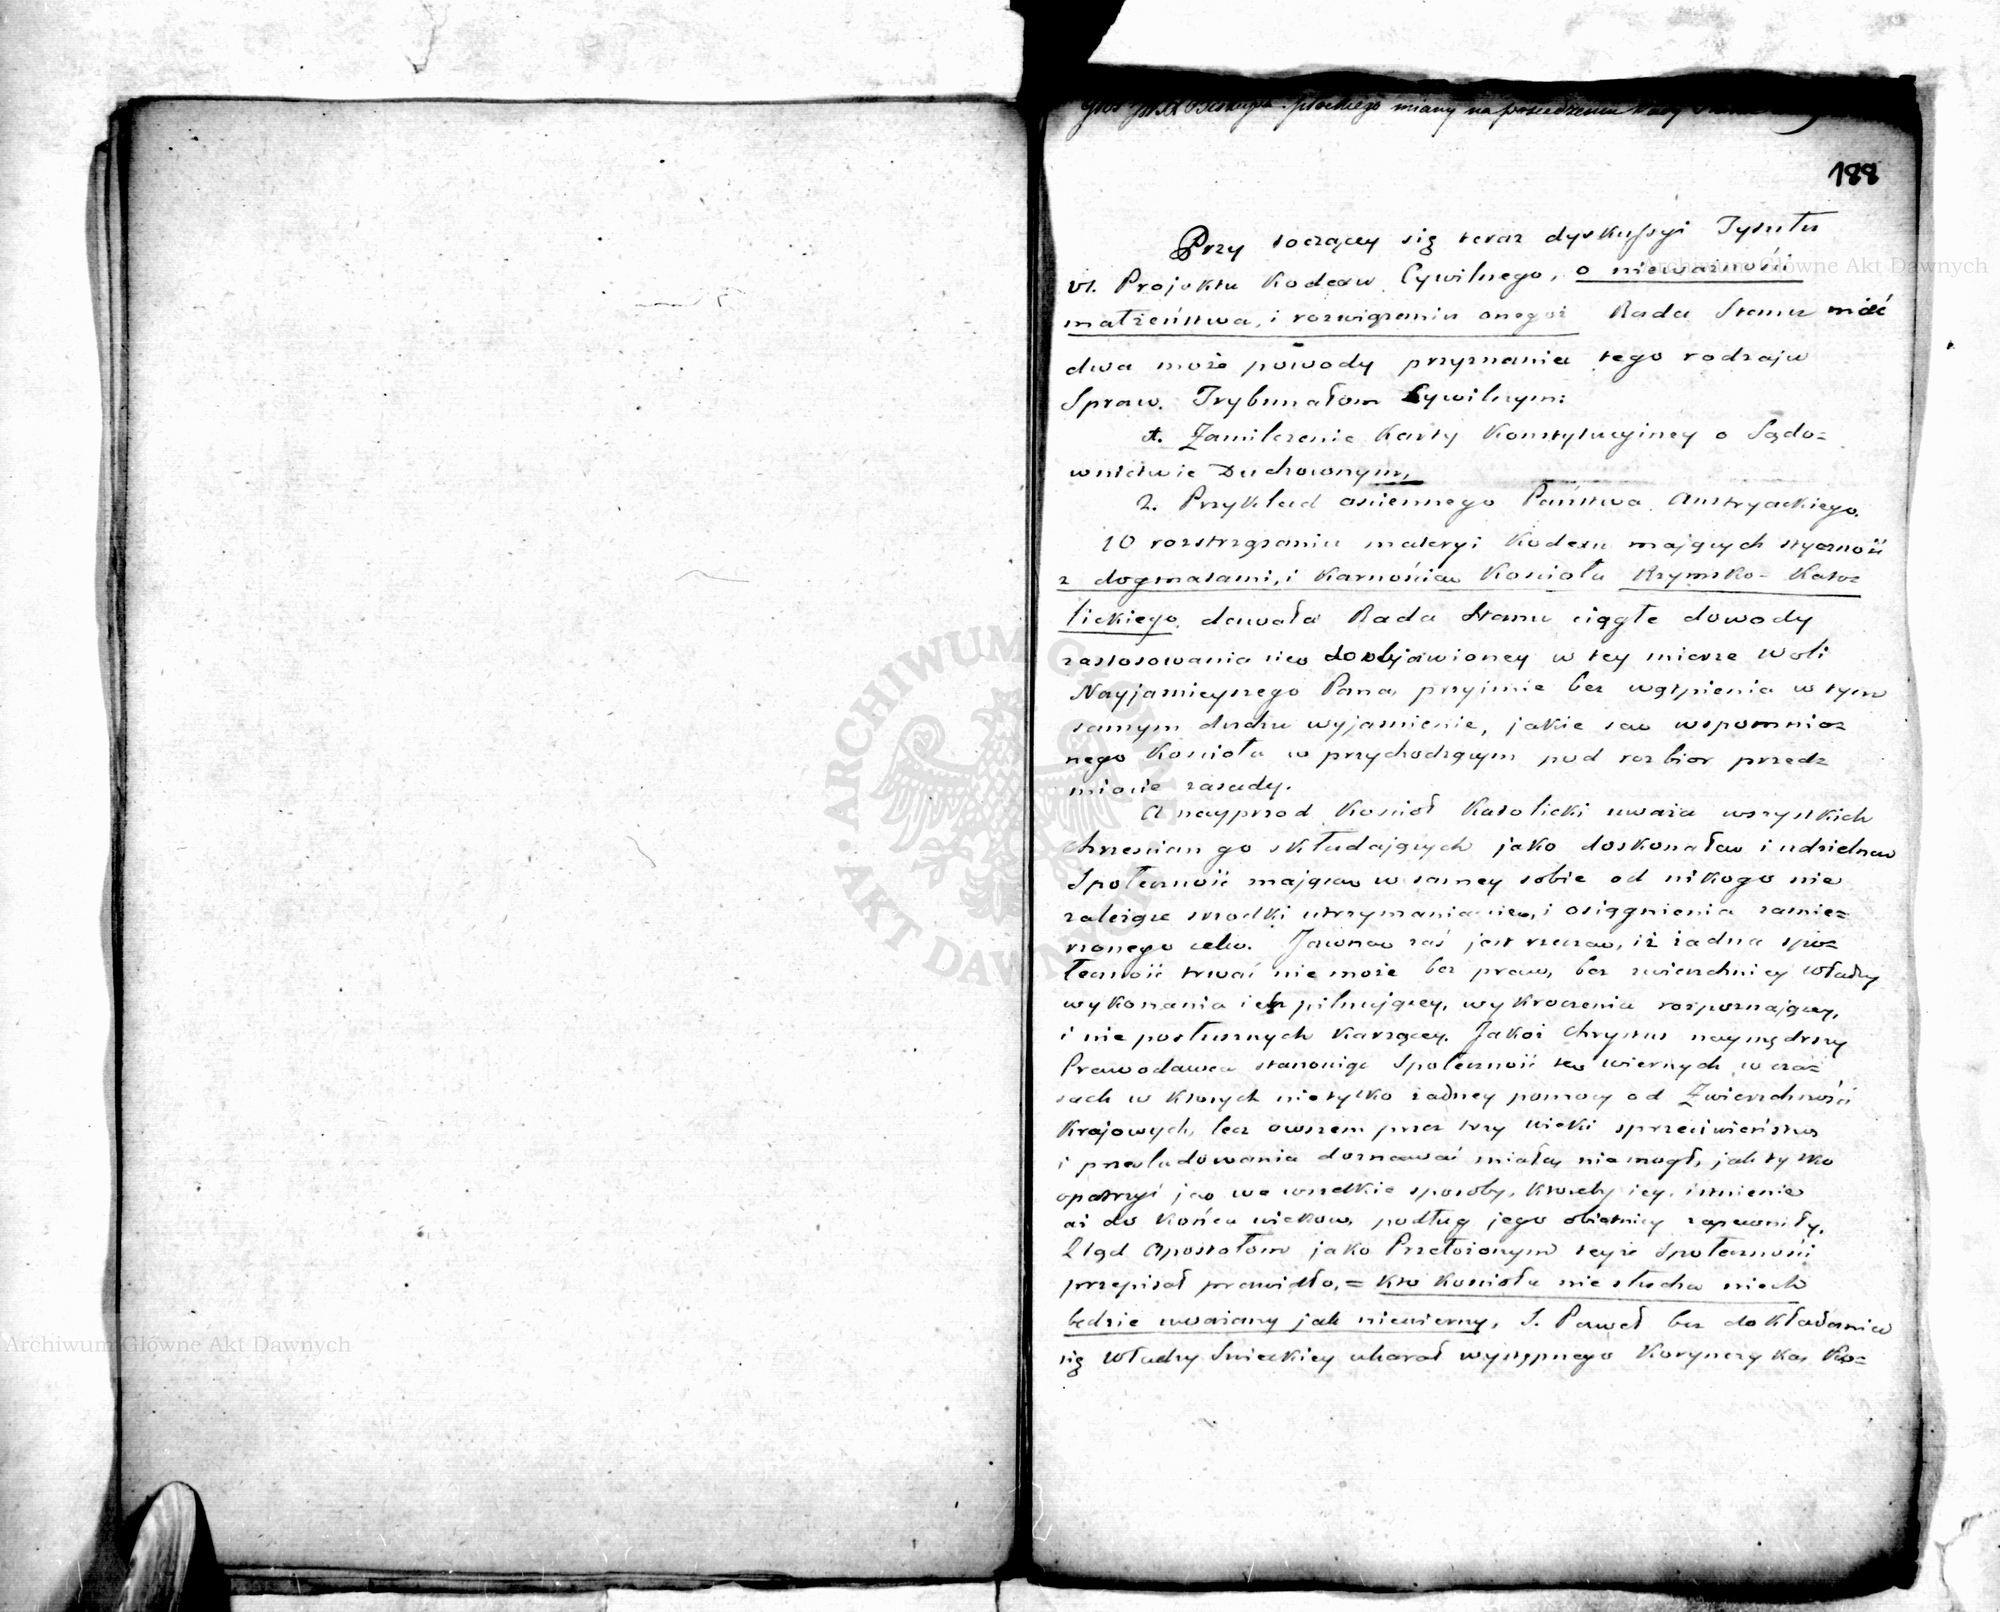 Głos JW. X Biskupa Płockiego miany na posiedzeniu Rady Stanu
188
Przy toczącey się teraz dyskussyi Tytułu
VI. Projektu Kodexu Cywilnego, o nieważności
małżeństwa, i rozwiązaniu onegoż Rada Stanu mieć
dwa może powody przyznania tego rodzaju
Spraw. Trybunałom Cywilnym:
1. Zamilczenie Karty Konstytucyiney o Sądo=
wnictwie Duchownym,
2. Przykład ościennego Państwa Austryackiego.
W rozstrząsaniu materyi Kodexu mających styczność
z dogmatami, i Karnością Kościoła Rzymsko-Kato=
lickiego, dawała Rada Stanu ciągłe dowody
zastosowania się do objawioney w tey mierze woli
Nayjaśnieyszego Pana, przyimie bez wątpienia w tym
samym duchu wyjaśnienie, jakie są wspomnio=
nego Kościoła w przychodzącym pod rozbior przed=
miocie zasady.
A nayprzod Kościoł Katolicki uważa wszystkich
chrześcian go składających jako doskonałą i udzielną
Społeczność mającą w samey sobie od nikogo nie
zależące srzodki utrzymania się, i osiągnienia zamie=
rzonego celu. Jawną zaś jest rzeczą, iż żadna spo=
łeczność trwać nie może bez praw, bez zwierzchniey władzy
wykonania ich pilnującey, wykroczenia rozpoznającey,
i nieposłusznych karzącey. Jakoż Chrystus naymędrszy
Prawodawca stanowiąc Społeczność tę wiernych w cza=
sach w ktorych nietylko żadney pomocy od Zwierzchności
Krajowych, lecz owszem przez trzy wieki sprzeciwieństwa
i prześladowania doznawać miała, niemogł, jak tylko
opatrzyć ją we wszelkie sposoby, ktoreby iey, istnienie
aż do końca wiekow, podług jego obietnicy zapewniły.
Ztąd Apostołom jako Przełożonym teyże Społeczności
przepisał prawidło, = kto kościoła nie słucha niech
będzie uważany jak niewierny, S. Paweł bez dokładania
się Władzy Świeckiey ukarał występnego Korynczyka, Ko=
Archiwum Główne Akt Dawnych
Archiwum Główne Akt Dawnych
ARCHIWUM GŁÓWNE AKT DAWNYCH